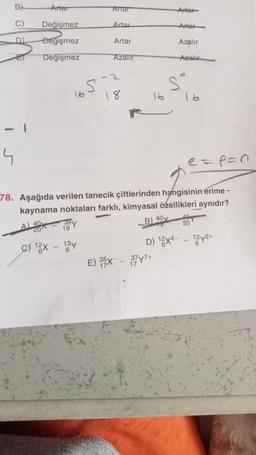 B) Artar Artar Artar
C) Değişmez Artar Artar
D) Değişmez Artar Azalır
E) Değişmez Azalır Azalır
₁₆S⁻² 18 ₁₆S⁰ 16
-1
4
e=p=n
78. Aşağıda verilen tanecik çiftlerinden hangisinin erime -
kaynama noktaları farklı, kimyasal özellikleri aynıdır?
C) ¹²₆X – ¹³₆Y D) ¹²₆X⁴⁻ – ¹²₆Y²⁺
E) ³⁵₁₇X⁻ – ³⁷₁₇Y⁷⁺